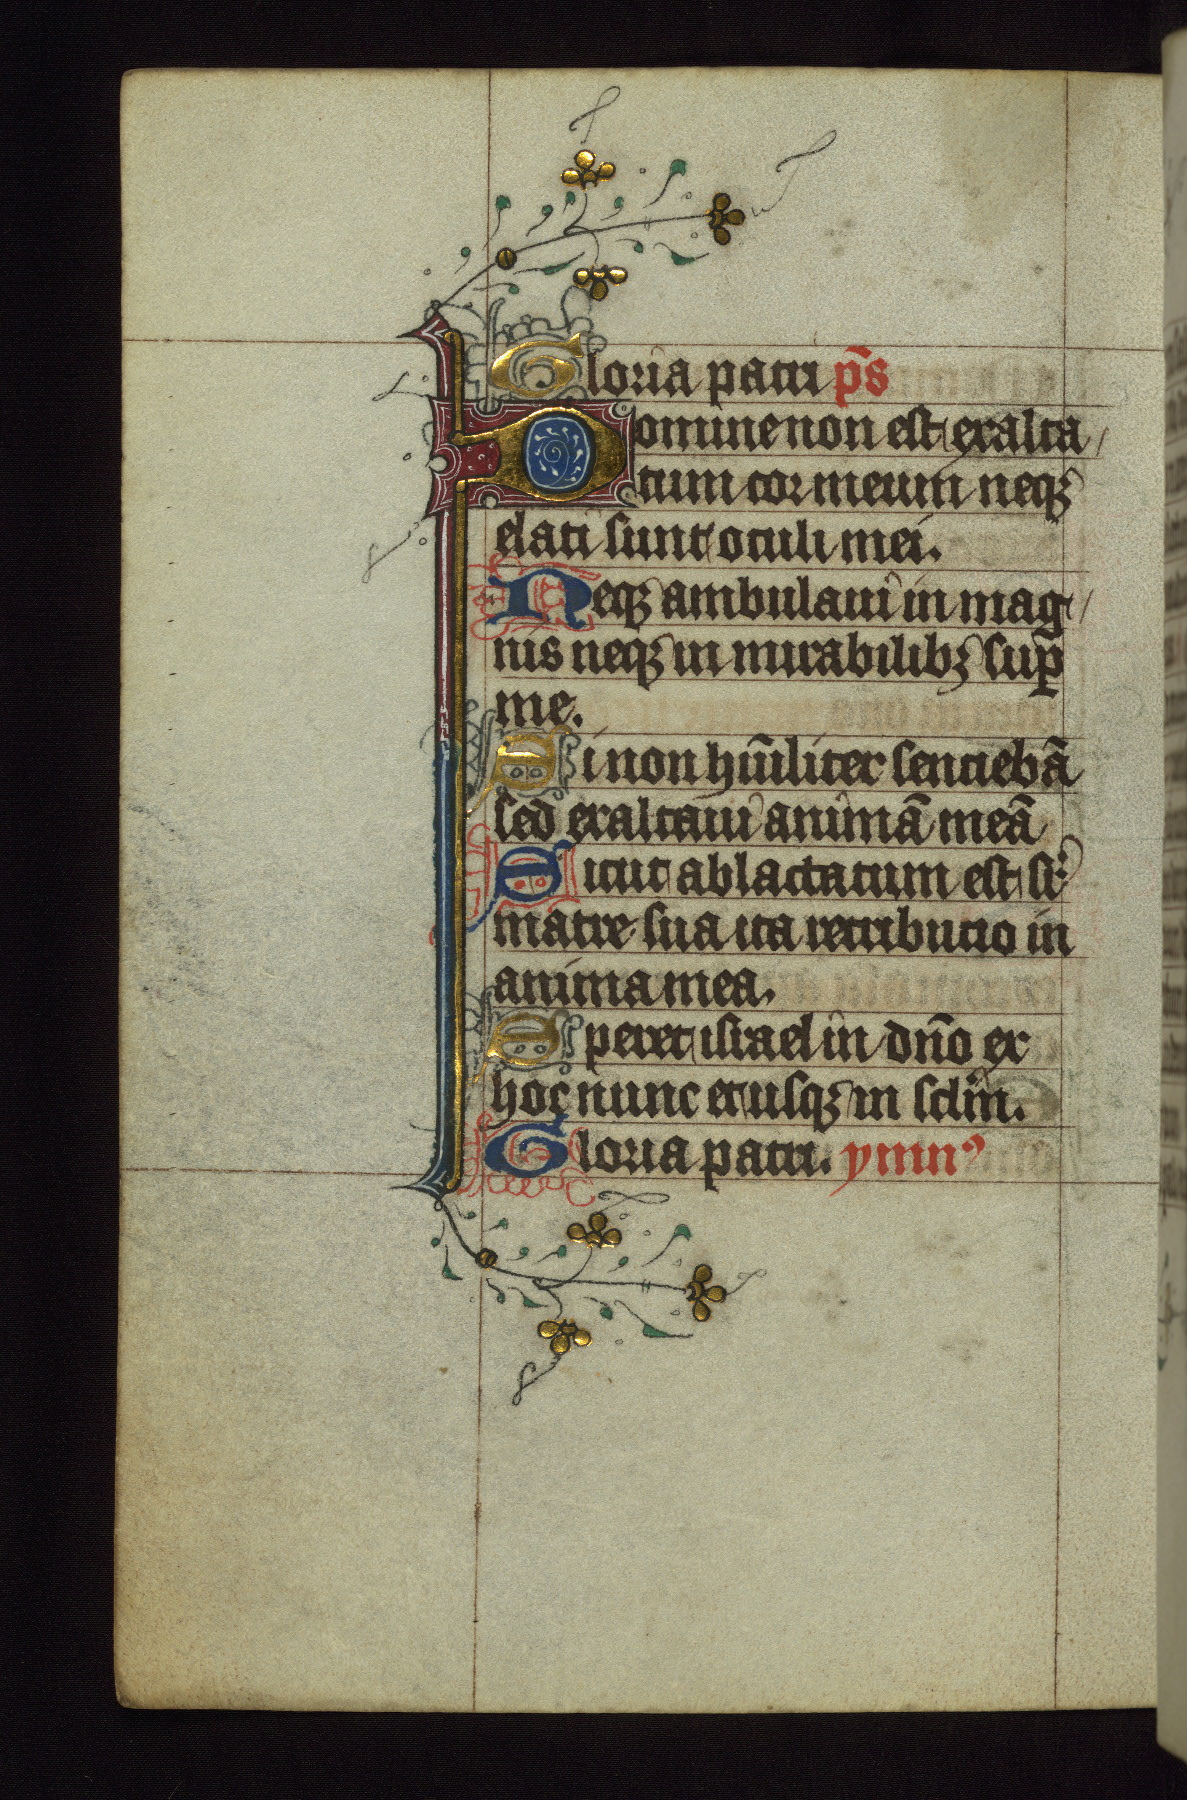 Gloria patri p̄s
Domine non est exalta
tum cor meum neqꝫ
elati sunt oculi mei.
Neqꝫ ambulaui in mag
nis neqꝫ in mirabilibꝫ suꝑ
me.
Si non hūiliter sentiebā
sed exaltaui animā meā
Sicut ablactatum est sr̄
matre sua ita retributio in
anima mea.
Speret israel in dn̄o ex
hoc nunc et usqꝫ in sclm̄.
Gloria patri. ymnꝰ